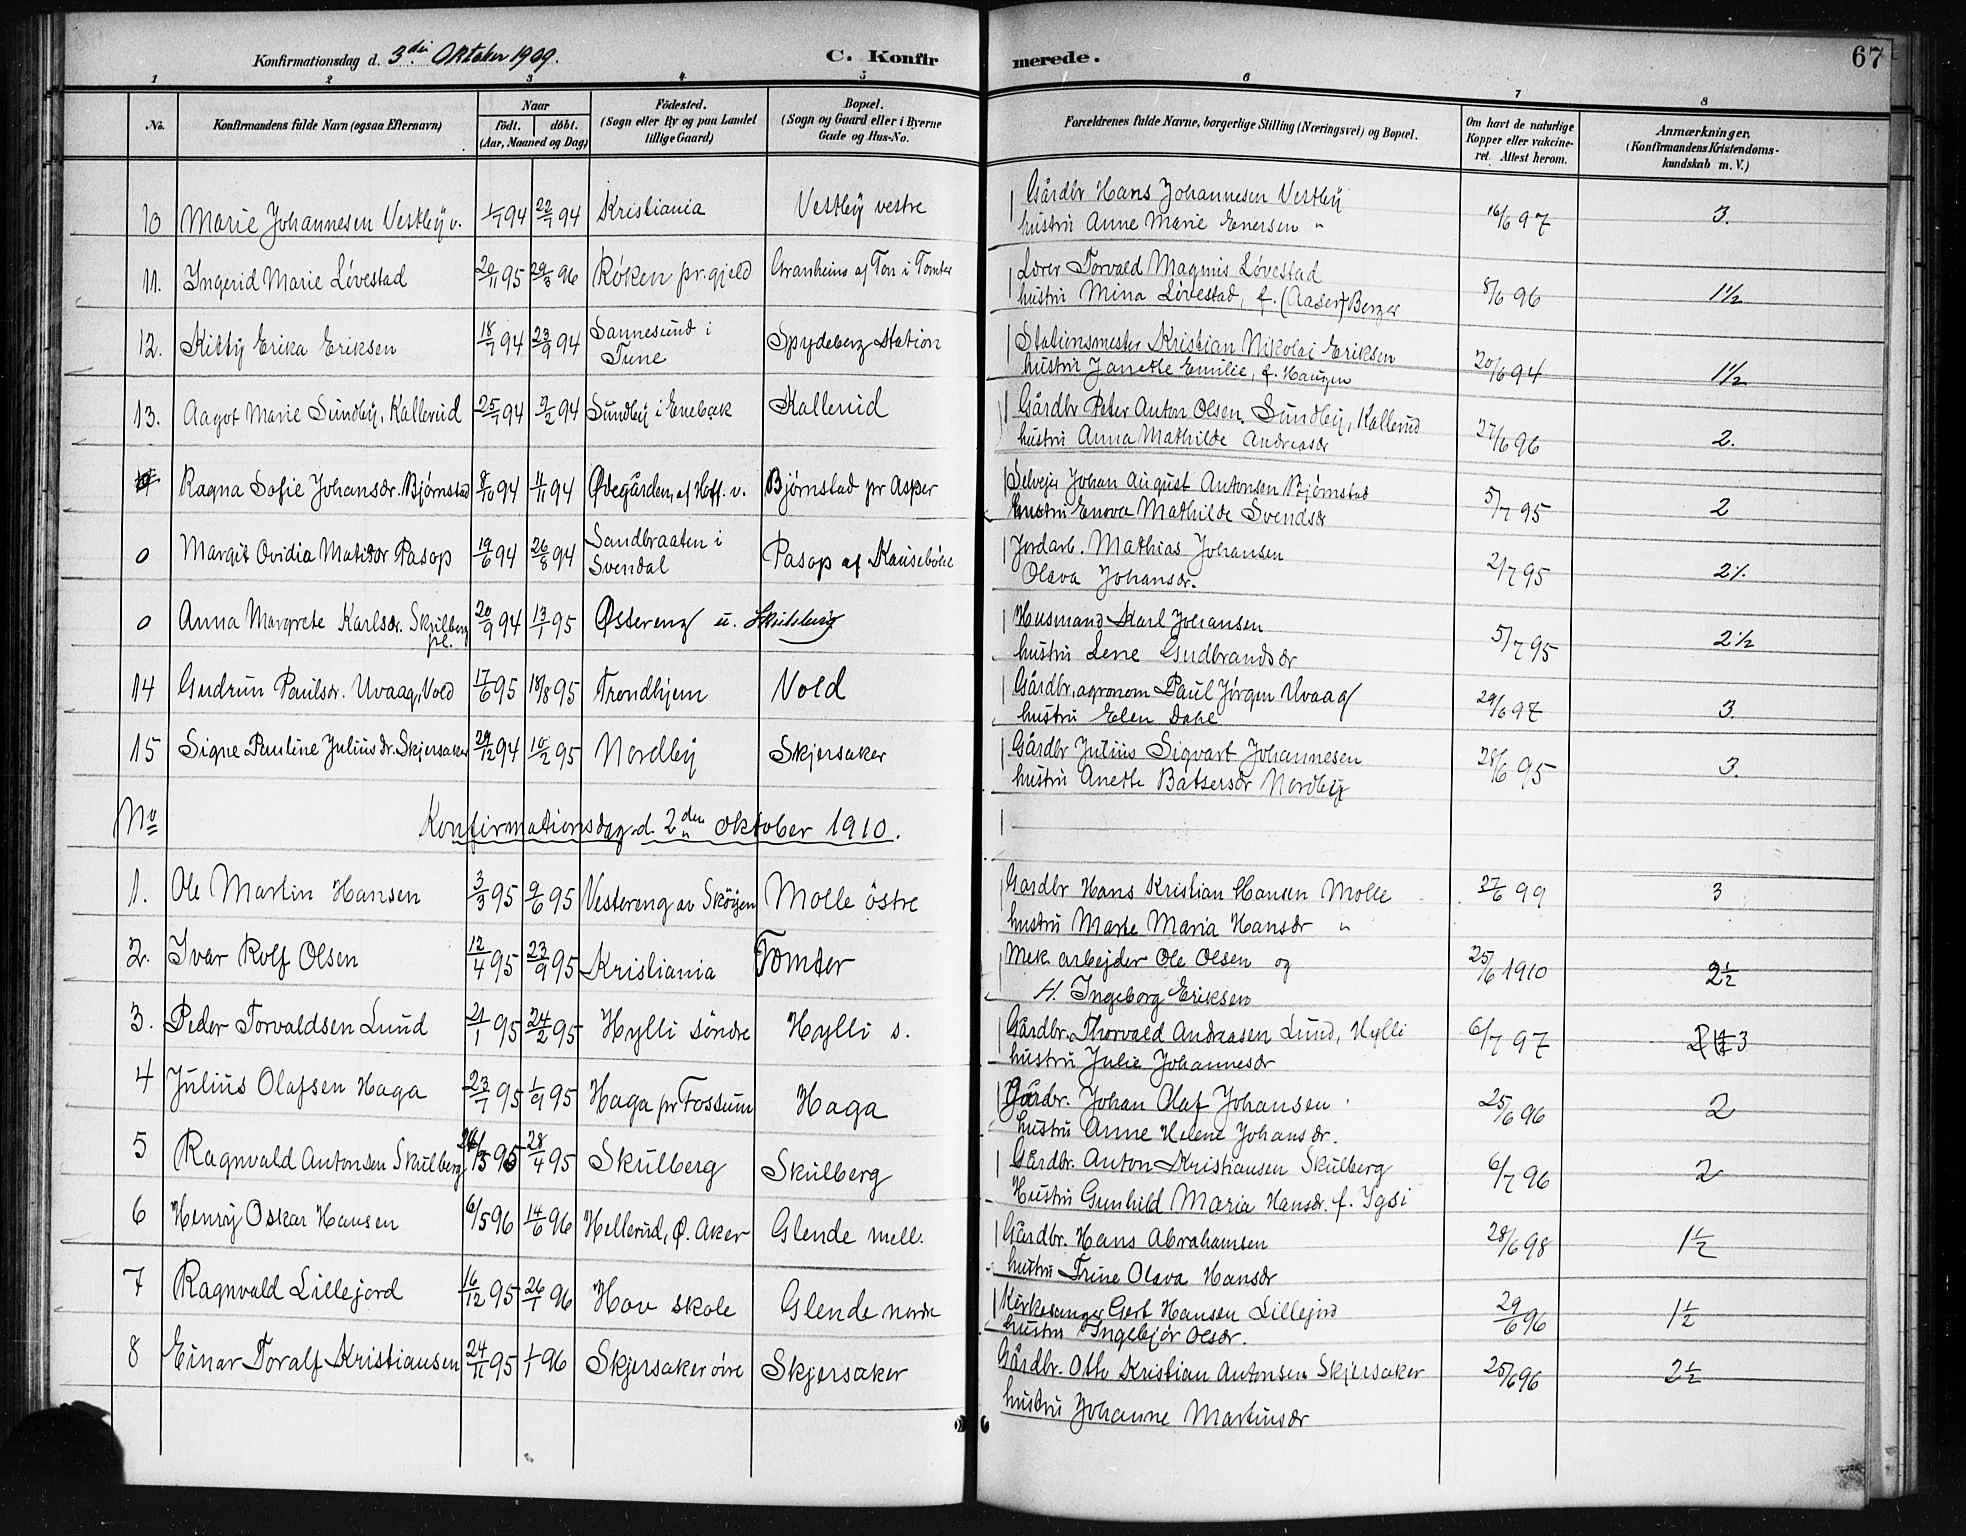 Konfirmationsdag d. 3die Oktober 1909. C. Konfirmerede. 67
1 2 3 4 5 6 7 8
No. Konfirmandens fulde Navn (ogsaa Efternavn) Naar født. døbt. (Aar, Maaned og Dag) Fødested. (Sogn eller By og paa Landet tillige Gaard) Bopæl. (Sogn og Gaard eller i Byerne Gade og Hus-No. Forældrenes fulde Navne, borgerlige Stilling (Næringsvei) og Bopæl. Om havt de naturlige Kopper eller vakcineret. Attest herom. Anmærkninger. (Konfirmandens Kristendomskundskab m. V.)
10 Marie Johannesen Vestby v. 1/7 94 22/7 94 Kristiania Vestby vestre Gårdbr Hans Johannesen Vestby 16/6 97 3.
hustru Anne Marie Enersen "
11. Ingerid Marie Løvestad 20/11 95 29/3 96 Røken pr.gjeld Granheim af Ton i Tomter Lærer Torvald Magnus Løvestad 8/6 96 1 1/2
hustru Mina Løvestad, f. (Aasen) Berger
12. Kitty Erika Eriksen 18/7 94 23/9 94 Sannesund i Tune Spydeberg Station Stationsmester Kristian Nikolai Eriksen 20/6 94 1 1/2
hustru Janette Emilie, f. Haugen
13. Aagot Marie Sundby, Kallerud 25/7 94 9/2 94 Sundby i Enebæk Kallerud Gårdbr Peter Anton Olsen Sundby, Kallerud 27/6 96 2.
hustru Anna Mathilde Andreasdr
Ragna Sofie Johansdr. Bjørnstad 8/10 94 4/11 94 Ødegården, af Hoff. v. Bjørnstad pr Asper Selvejer Johan August Antonsen Bjørnstad 5/7 95 2
hustru Enova Mathilde Svendsdr
0 Margit Ovidia Matidor Pasop 19/6 94 26/8 94 Sandbraaten i Svendal Pasop af Jordarb. Mathias Johansen 2/7 95
Olava Johansdr.
0 Anna Margrete Karlsdr. Skulberg pl. 20/9 94 13/1 95 Østereng u. Skulberg Husmand Karl Johansen 5/7 95 2 1/2
hustru Lene Gudbrandsdr
14 Gudrun Paulsdr. Uvaag, Vold 17/6 95 18/8 95 Trondhjem Vold Gårdbr, agronom Paul Jørgen Uvaag 29/6 97 3.
hustru Elen Dahl
15 Signe Pauline Juliusdr. Skjersaker 29/12 94 10/2 95 Nordby Skjersaker Gårdbr Julius Sigvart Johannesen 28/6 95 3.
hustru Anette Batsersdr Nordby
No Konfirmationsdag d. 2den oktober 1910.
1. Ole Martin Hansen 3/3 95 9/6 95 Vestereng av Skøyen Molle østre Gardbr Hans Kristian Hansen Molle 27/6 99 3
hustru Marte Maria Hansdr "
2. Ivar Rolf Olsen 12/4 95 23/9 95 Kristiania Tomter Mek. arbejder Ole Olsen og 25/6 1910 2 1/2
H. Ingeborg Eriksen
3. Peder Torvaldsen Lund 21/1 95 24/2 95 Hylli søndre Hylli s. Gårdbr. Thorvald Andreasen Lund, Hylli 6/7 97 3
hustru Julie Johannesdr
4 Julius Olafsen Haga 23/7 95 1/9 95 Haga pr Fossum Haga Gårdbr. Johan Olaf Johansen 25/6 96 2
hustru Anne Helene Johansdr.
5 Ragnvald Antonsen Skulberg 95 28/4 95 Skulberg Skulberg Gårdbr. Anton Kristiansen Skulberg 6/7 96 2
Hustru Gunhild Maria Hansdr. f. Igsi
6 Henry Oskar Hansen 6/5 96 14/6 96 Hellerud, Ø. Aker Glende mell. Gårdbr. Hans Abrahamsen 28/6 98 1 1/2
hustru Trine Olava Hansdr
7 Ragnvald Lillejord 16/12 95 26/1 96 Hov skole Glende nordre Kirkesanger Gert Hansen Lillejord 29/6 96 1 1/2
hustru Ingebjør Olsdr.
8 Einar Toralf Kristiansen 24/11 95 1/1 96 Skjersaker øvre Skjersaker Gårdbr. Otto Kristian Antonsen Skjersaker 25/6 96 2 1/2
hustru Johanne Martinsdr